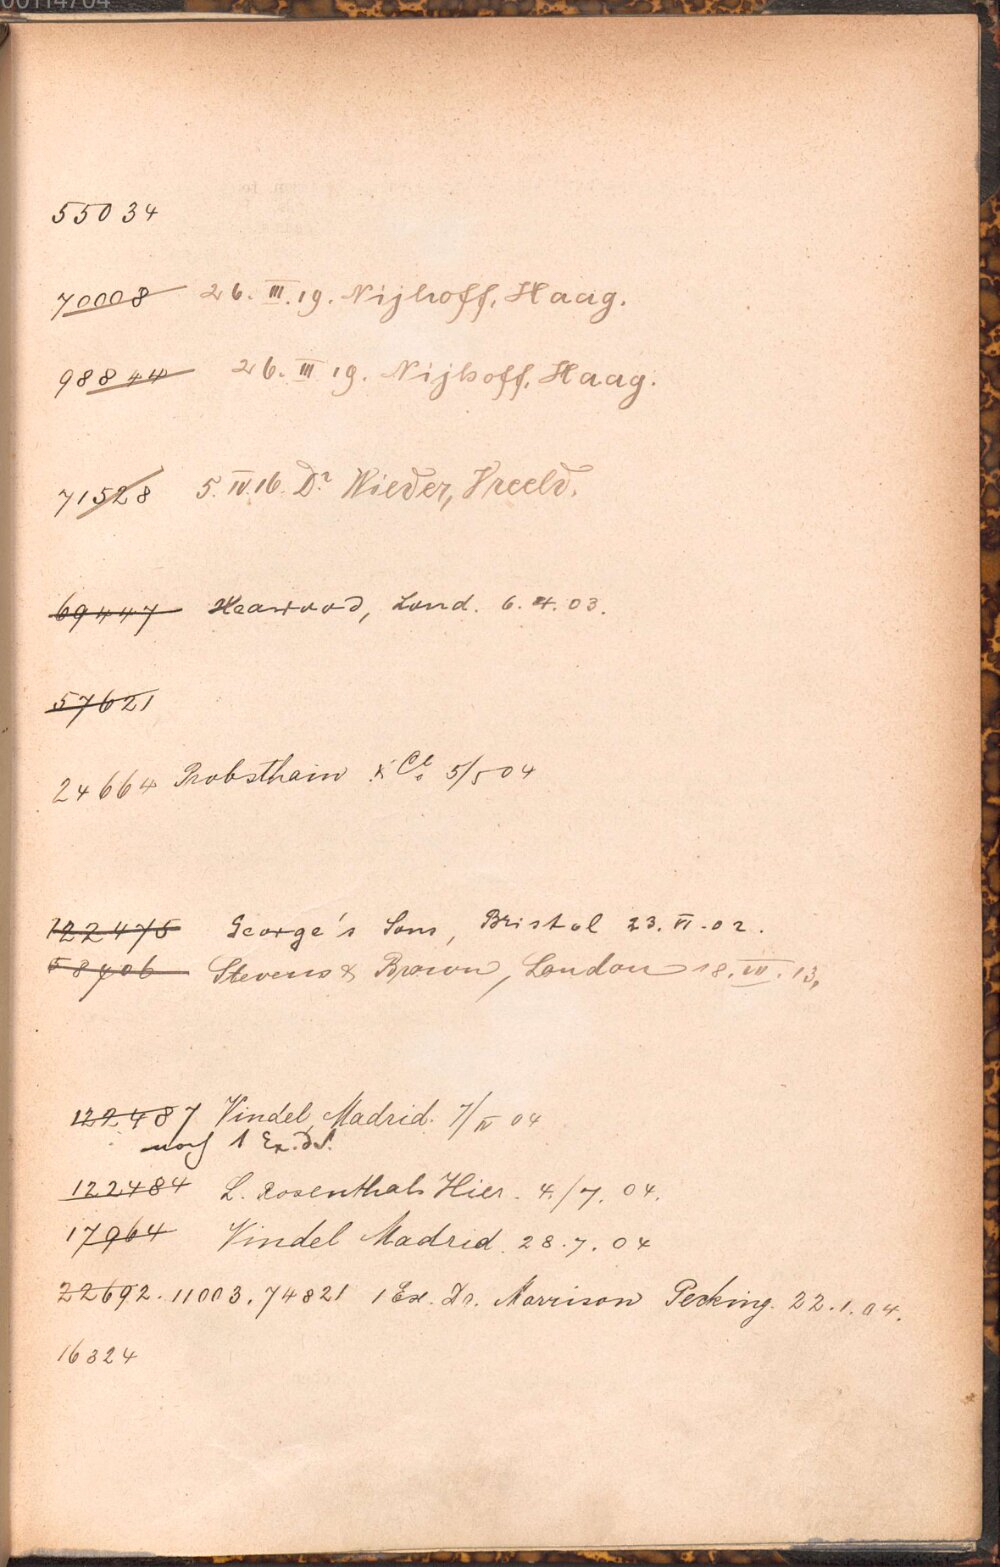 00114704
55034
70008 26. III. 19. Nijhoff, Haag.
98844 26. III 19. Nijhoff, Haag.
71528 5. IV. 16. Dr Wieder,
69447 Heawood, Lond. 6. 4. 03.
57621
24664 Probsthain & Co. 5/5 04
122475 George's Sons, Bristol 23. VI. 02.
58406 Stevens & Brown, London 18. 13.
122487 Vindel Madrid. 7/IV 04
noch 1 Ex. ds.
122484 L. Rosenthal Hier. 4./7. 04.
17964 Vindel Madrid 28. 7. 04
22692. 11003. 74821 1 Ex. Dr. Morrison Pecking. 22. 1. 04.
16324